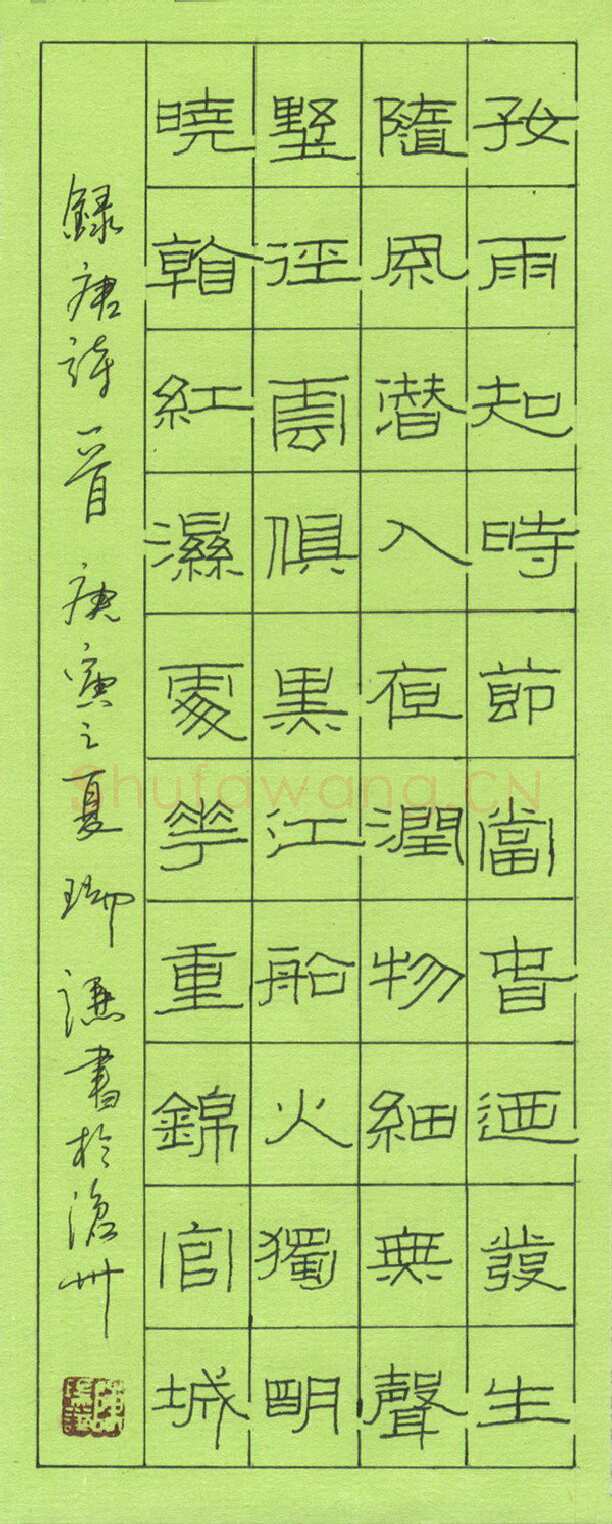 好雨知時節當春迺發生
隨風潛入夜潤物細無聲
野徑雲俱黑江船火獨明
曉看紅濕處花重錦官城
錄唐詩一首 庚寅之夏 謙書於滄州
Shufawang.CN